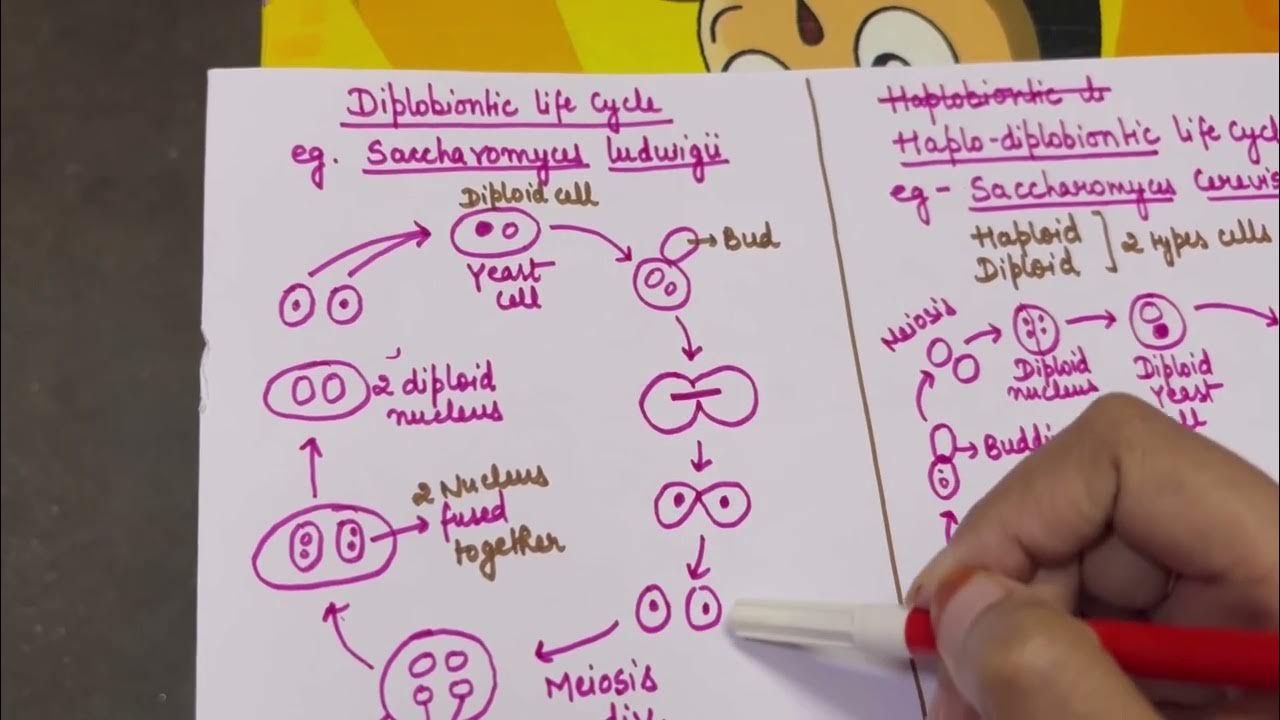 Diplobiontic life Cycle
eg. Saccharomyces ludwigii
Diploid cell
Yeast
cell
Bud
2 diploid
nucleus
2 Nucleus
fused
together
Meiosis
div
Haplobiontic
Haplo-diplobiontic life Cycl
eg - Saccharomyces Cerevis
Haploid
Diploid
2 types cells
Meiosis
Diploid
nucleus
Diploid
Yeast
Buddi